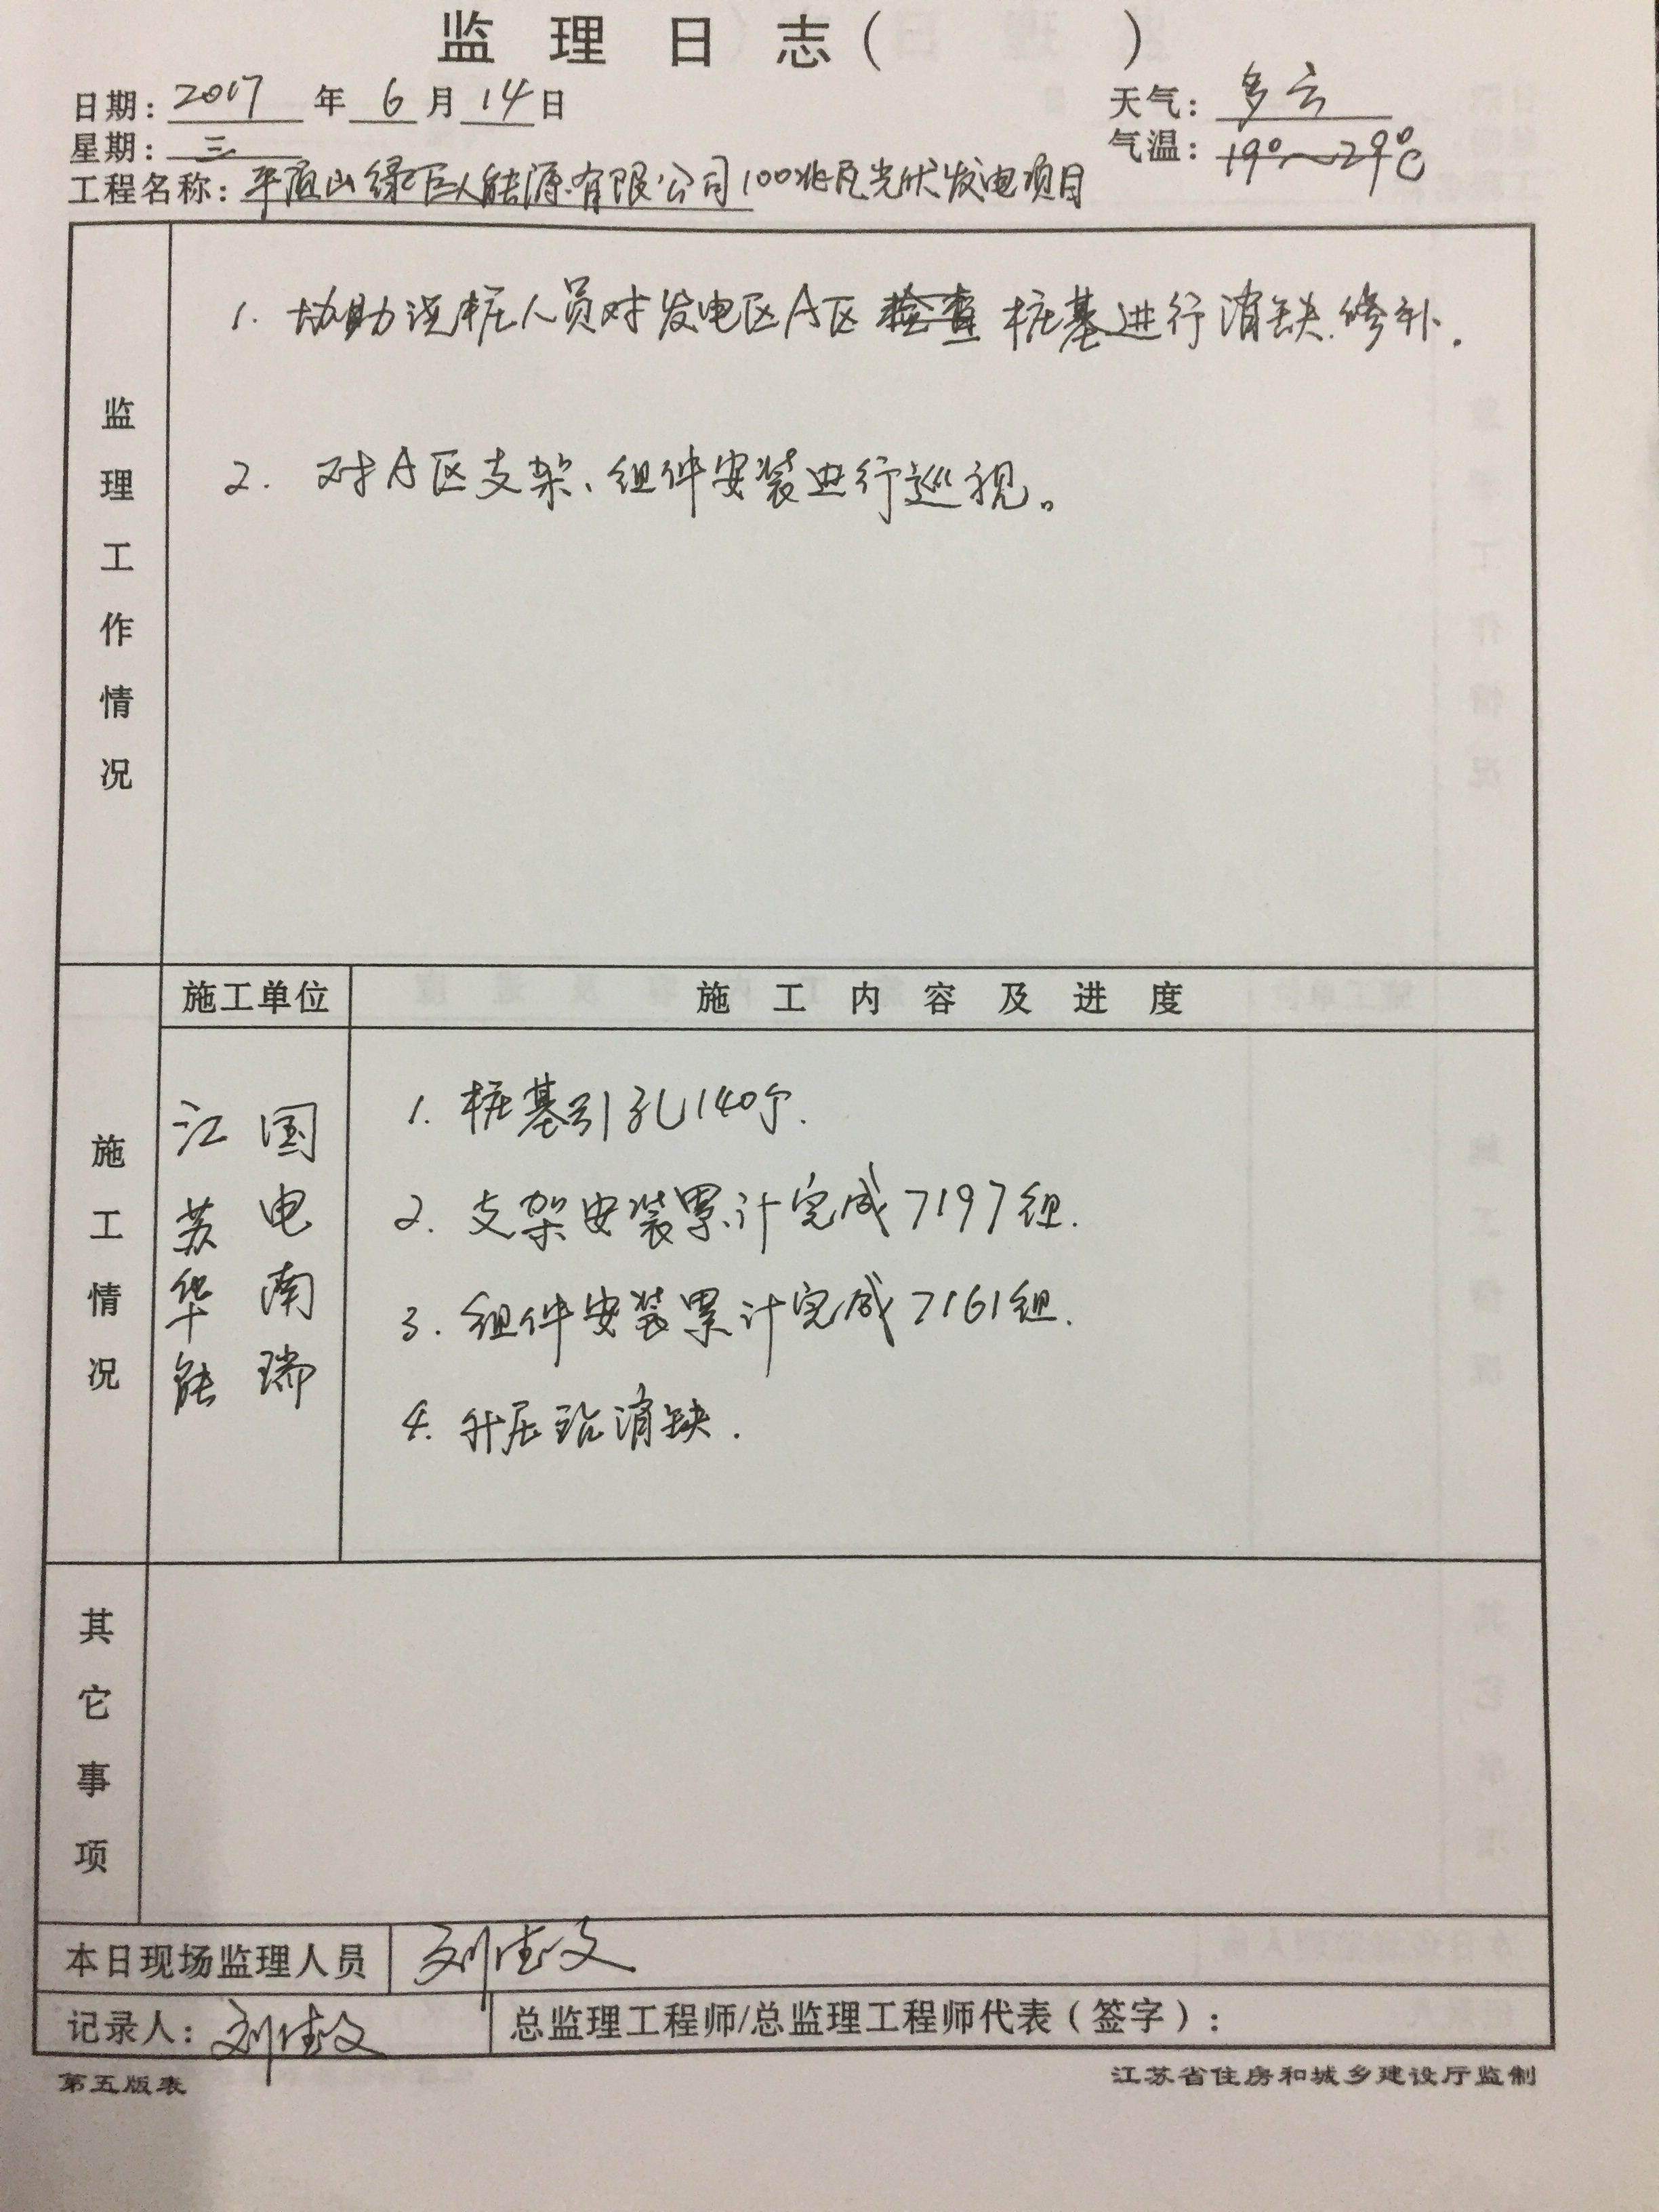 监理日志（ ）
日期：2017年6月14日 天气：多云
星期：三 气温：19°～29℃
工程名称：平顶山绿巨人能源有限公司100兆瓦光伏发电项目
监理工作情况
1. 协助浇桩人员对发电区A区检查桩基进行消缺.修补.
2. 对A区支架、组件安装进行巡视。
施工情况
施工单位 施工内容及进度
江苏华能
国电南瑞
1. 桩基引孔140个.
2. 支架安装累计完成7197组.
3. 组件安装累计完成7161组.
4. 升压站消缺.
其它事项
本日现场监理人员
记录人： 总监理工程师/总监理工程师代表（签字）：
第五版表 江苏省住房和城乡建设厅监制